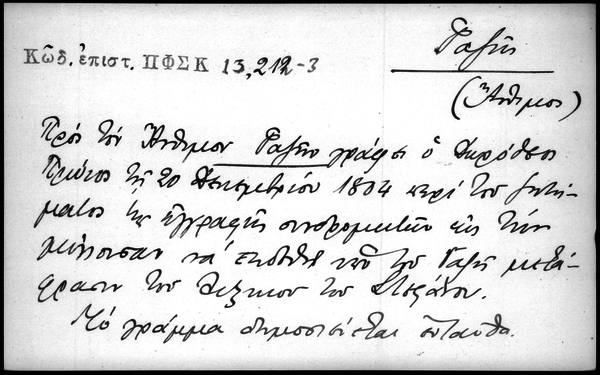 Γαζῆς
Κῶδ. ἐπιστ. ΠΦΣΚ 13,212-3
(Ἄνθιμος)
Πρὸς τὸν Ἄνθιμον Γαζῆν γράφει ὁ Δωρόθεος
Πρώιος τῇ 20 Δεκεμβρίου 1804 περὶ τοῦ ζητή-
ματος τῆς ἐγγραφῆς συνδρομητῶν εἰς τὴν
μέλλουσαν νὰ ἐκδοθῇ ὑπὸ τοῦ Γαζῆ μετά-
φρασιν τοῦ Λεξικοῦ τοῦ
Τὸ γράμμα δημοσιεύεται ἐνταῦθα.